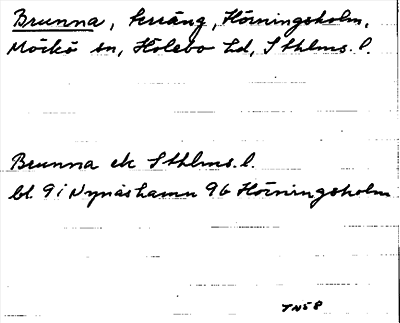 Brunna, terräng, Hörningsholm,
Mörkö sn, Hölebo hd, Sthlms. l.
Brunna ek Sthlms. l.
bl. 9 i Nynäshamn 9b Hörningsholm
TN58